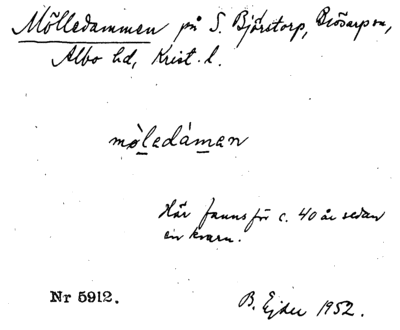 Mölledammen på S. Björstorp, Brösarps sn,
Albo hd, Krist. l.
møledàmen
Här fanns för c. 40 år sedan
en kvarn.
Nr 5912.
B. Ejder 1952.